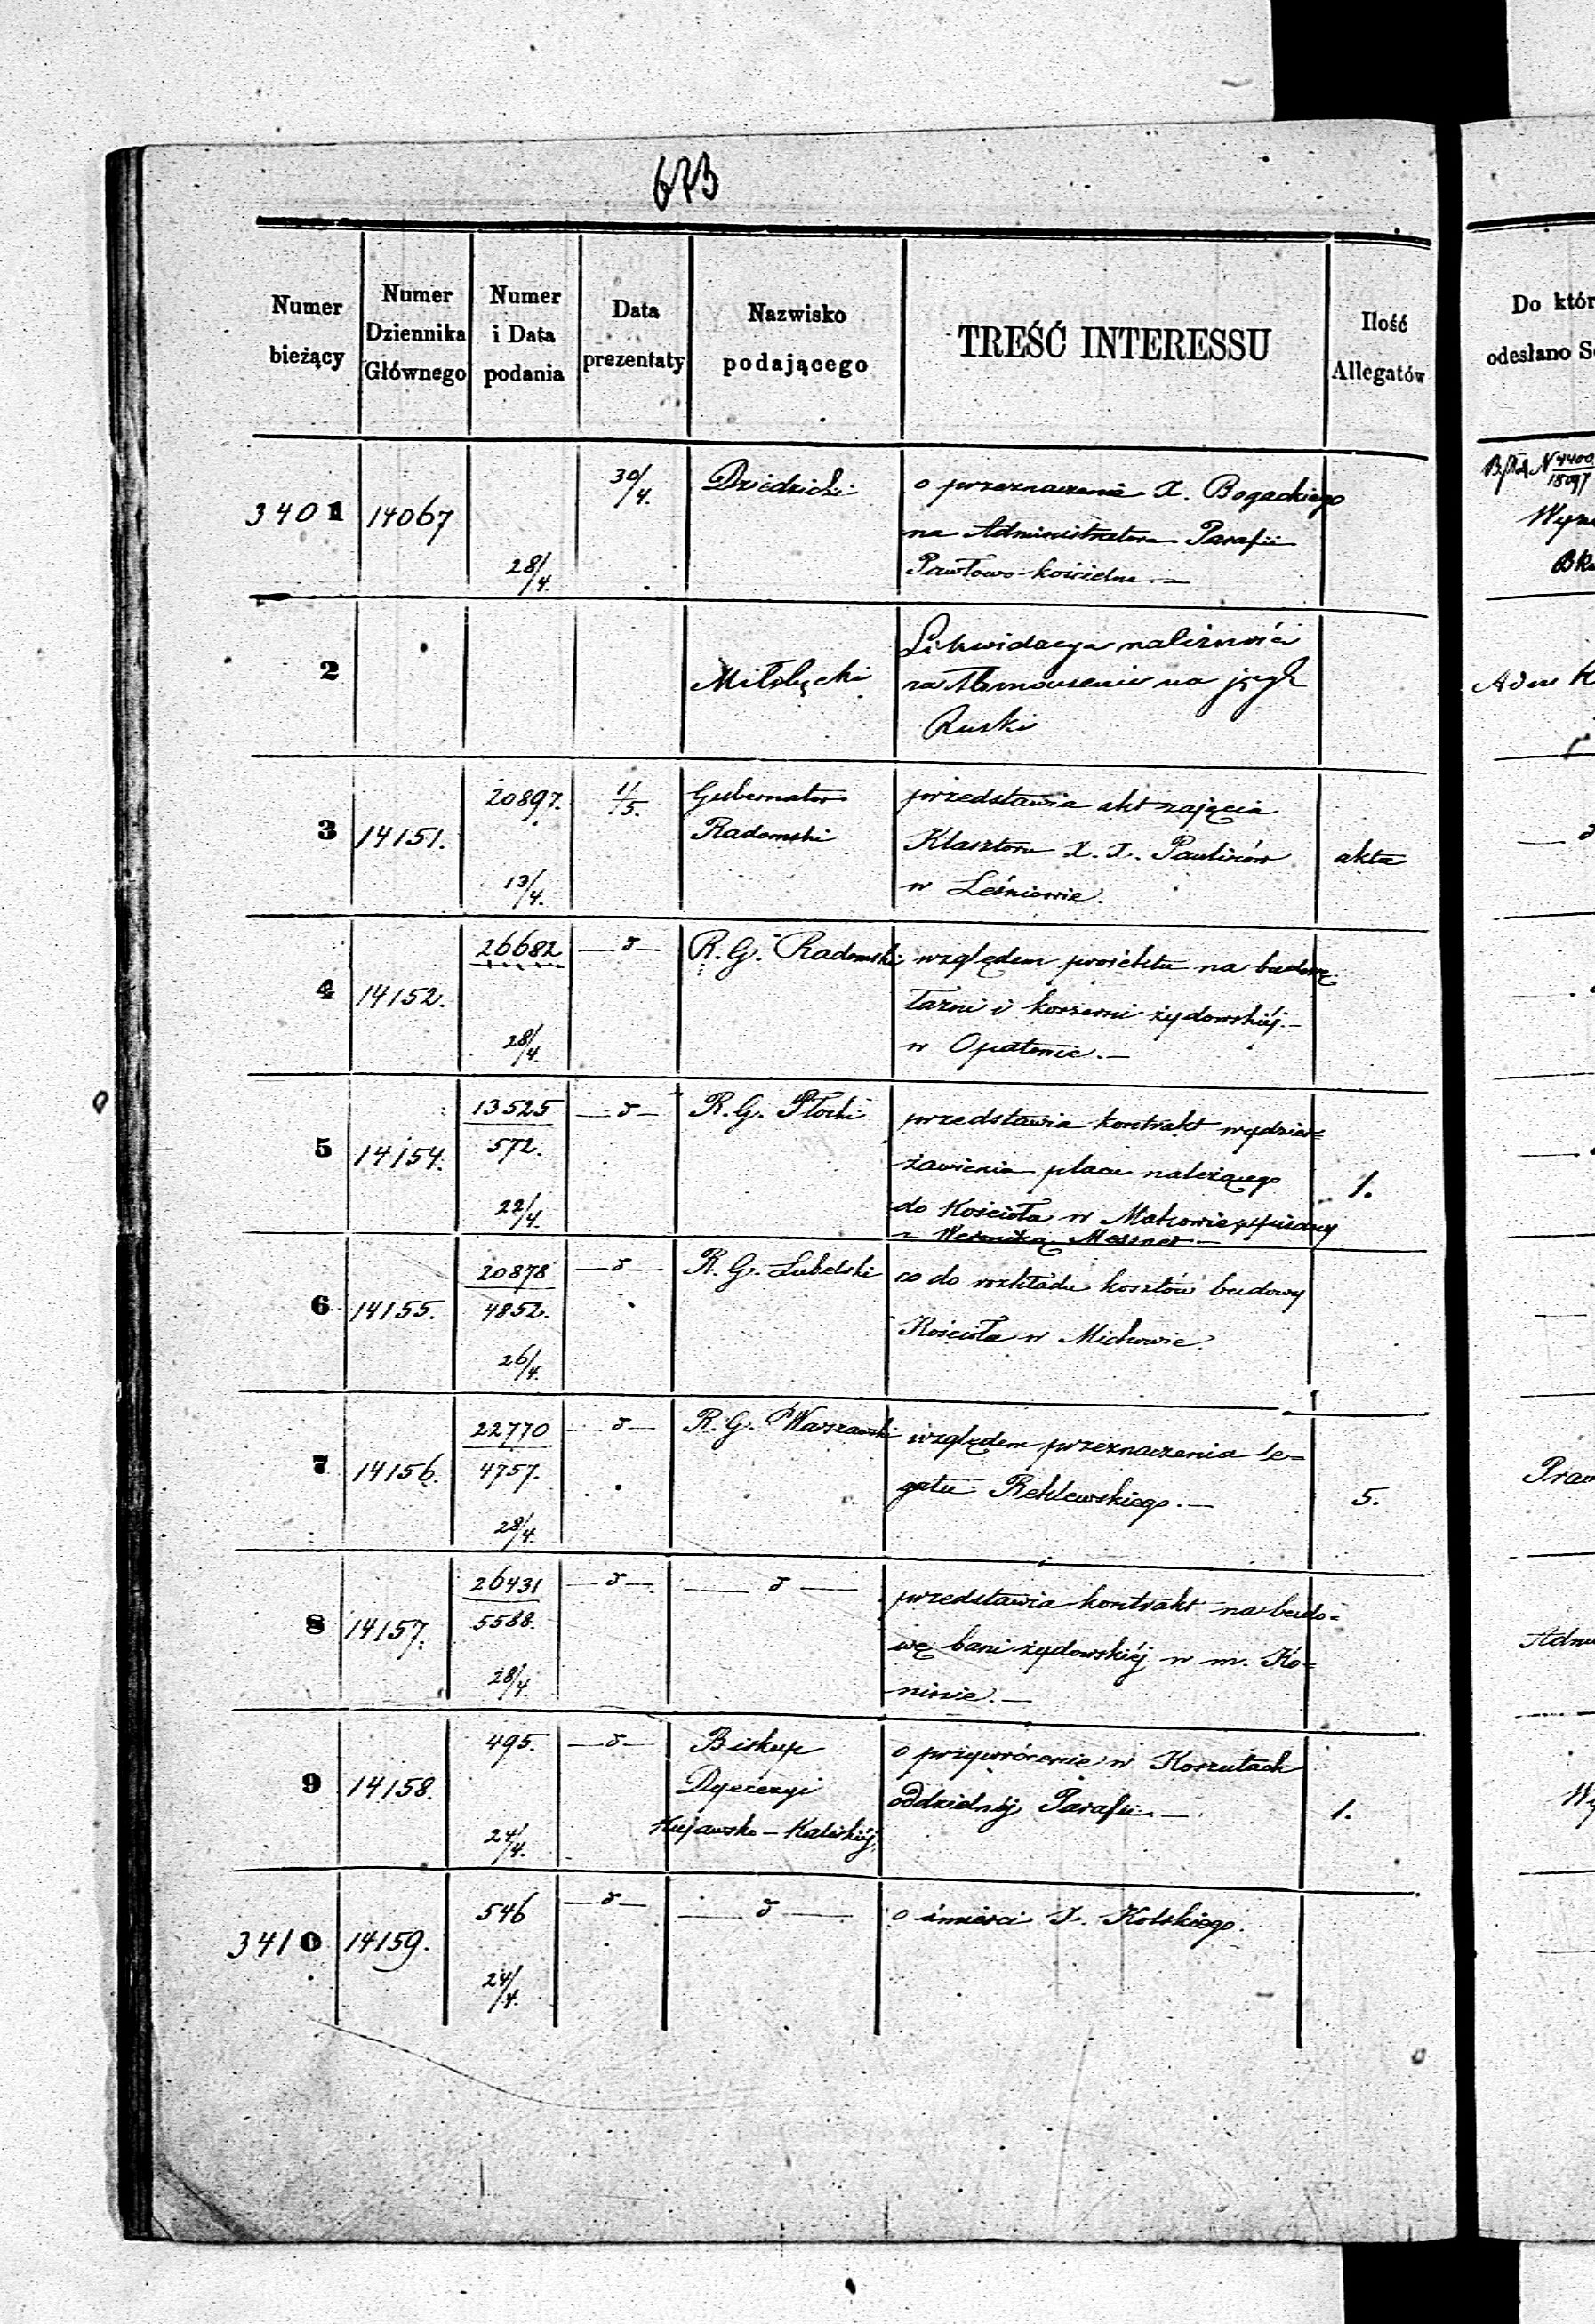 673
Numer bieżący
Numer Dziennika Głównego
Numer i Data podania
Data prezentaty
Nazwisko podającego
TREŚĆ INTERESSU
Ilość Allegatów
Do któr
odesłano S
3401 14067 28/4. 30/4. Dziedzicki o przeznaczenie X. Bogackiego
na Administratora Parafii
Pawłowo-kościelne.—
2 Likwidacya należności
za tłomaczenie na język
Ruski
3 14151. 20897. 13/4. 1/5. Gubernator
Radomski
przedstawia akt zajęcia
Klasztoru X. X. Paulinów
w Leśniowie.
akta
4 14152. 26682 28/4. —d— R. G. Radomski względem projektu na budowę
łazni i koszerni żydowskiéj.—
w Opatowie.—
5 14154. 13525
572.
22/4. —d— R. G. Płocki przedstawia kontrakt wydzier=
żawienia placu należącego
do Kościoła w Makowie
Messner—
1.
6 14155. 20878
4852.
26/4. —d— R. G. Lubelski co do rozkładu kosztów budowy
Kościoła w Michowie.
7 14156. 22770
4757.
28/4. —d— R. G. Warszawski względem przeznaczenia le=
gatu Reklewskiego.—
5.
Praw
8 14157. 26431
5588.
28/4. —d— —d— przedstawia kontrakt na budo=
wę bani żydowskiéj w m. Ko=
ninie.—
9 14158. 495. 24/4. —d— Biskup
Dyecezyi
Kujawsko-Kaliskiéj
o przywrócenie w Koszutach
oddzielnéj Parafii.—
1.
3410 14159. 546 24/4. —d— —d— o śmierci X. Kolskiego.